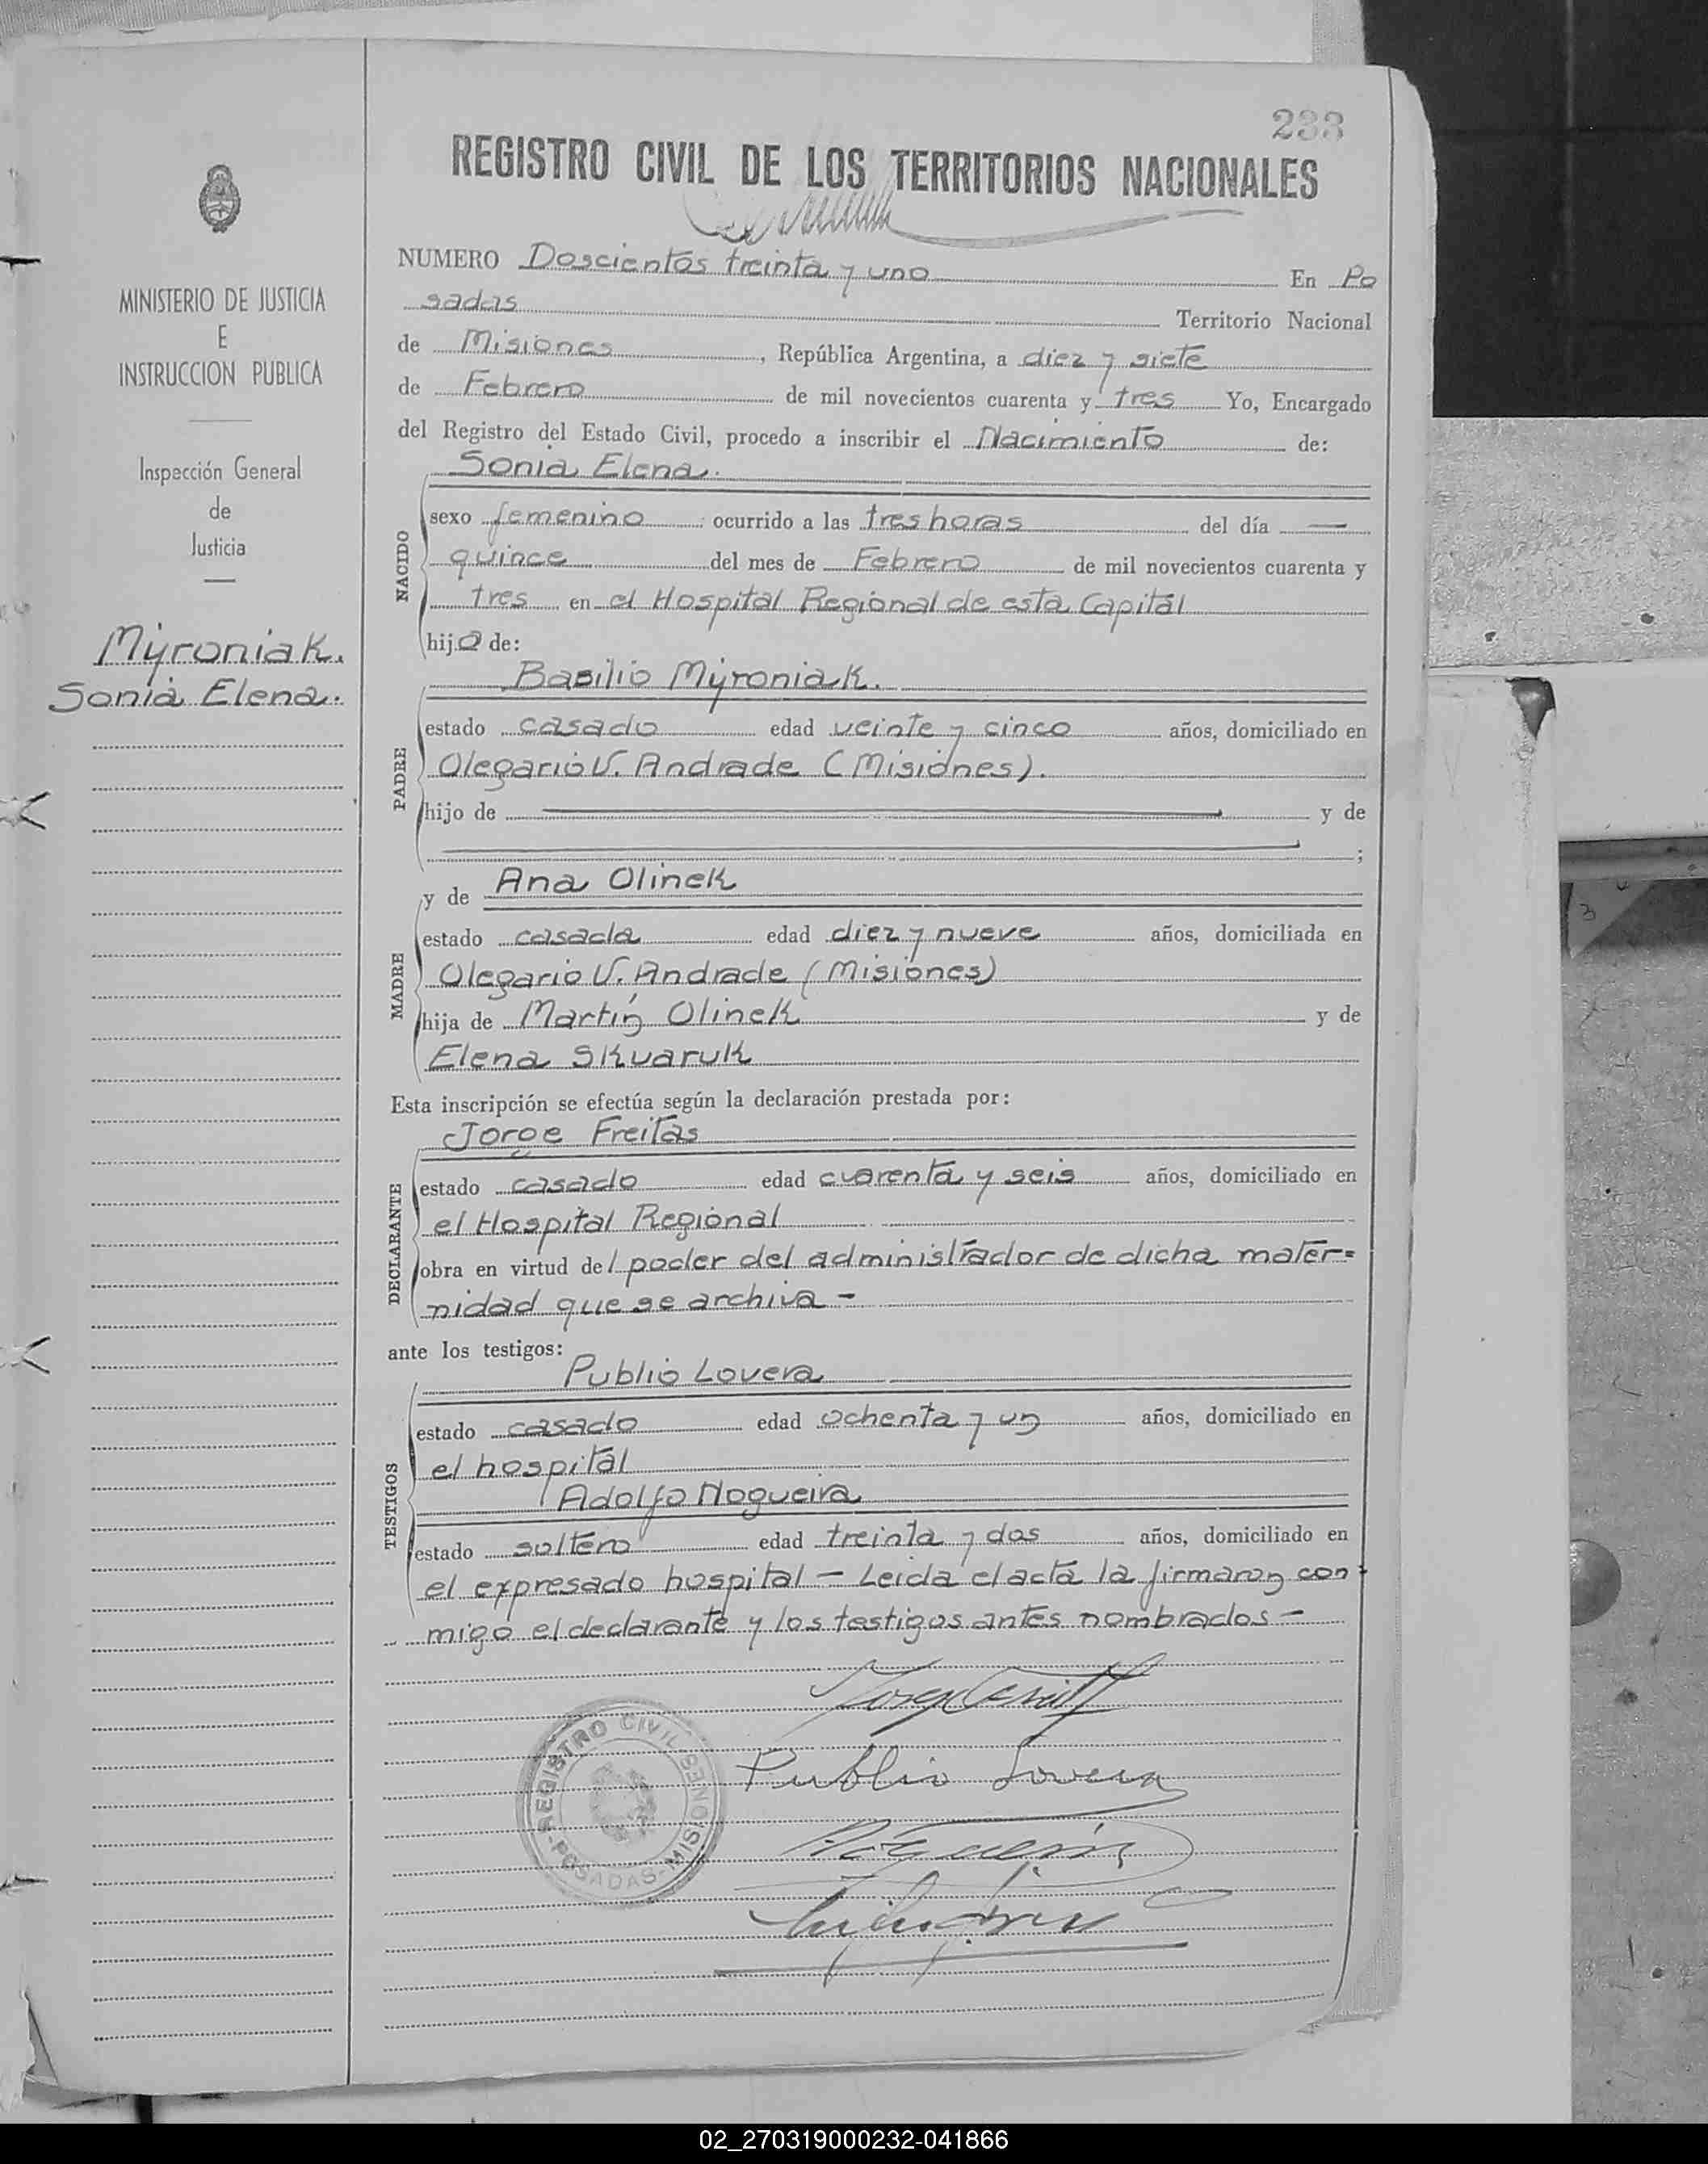 233
REGISTRO CIVIL DE LOS TERRITORIOS NACIONALES
NUMERO Doscientos treinta y uno En Po
sadas Territorio Nacional
de Misiones, República Argentina, a diez y siete
de Febrero de mil novecientos cuarenta y tres Yo, Encargado
del Registro del Estado Civil, procedo a inscribir el Nacimiento de:
MINISTERIO DE JUSTICIA
E
INSTRUCCION PUBLICA
Inspección General
de
Justicia
Myroniak.
Sonia Elena.
NACIDO
Sonia Elena.
sexo femenino ocurrido a las tres horas del día —
quince del mes de Febrero de mil novecientos cuarenta y
tres en el Hospital Regional de esta Capital
hija de:
PADRE
Basilio Myroniak.
estado casado edad veinte y cinco años, domiciliado en
Olegario V. Andrade (Misiones).
hijo de y de
;
y de Ana Olinek
MADRE
estado casada edad diez y nueve años, domiciliada en
Olegario V. Andrade (Misiones)
hija de Martín Olinek y de
Elena Skvaruk
Esta inscripción se efectúa según la declaración prestada por:
DECLARANTE
Jorge Freitas
estado casado edad cuarenta y seis años, domiciliado en
el Hospital Regional
obra en virtud del poder del administrador de dicha mater=
nidad que se archiva -
ante los testigos:
TESTIGOS
Publio Lovera
estado casado edad ochenta y un años, domiciliado en
el hospital
Adolfo Nogueira
estado soltero edad treinta y dos años, domiciliado en
el expresado hospital - Leida el acta la firmaron con
migo el declarante y los testigos antes nombrados -
Publio Lovera
Nogueira
REGISTRO CIVIL
POSADAS-MISIONES
02_270319000232-041866